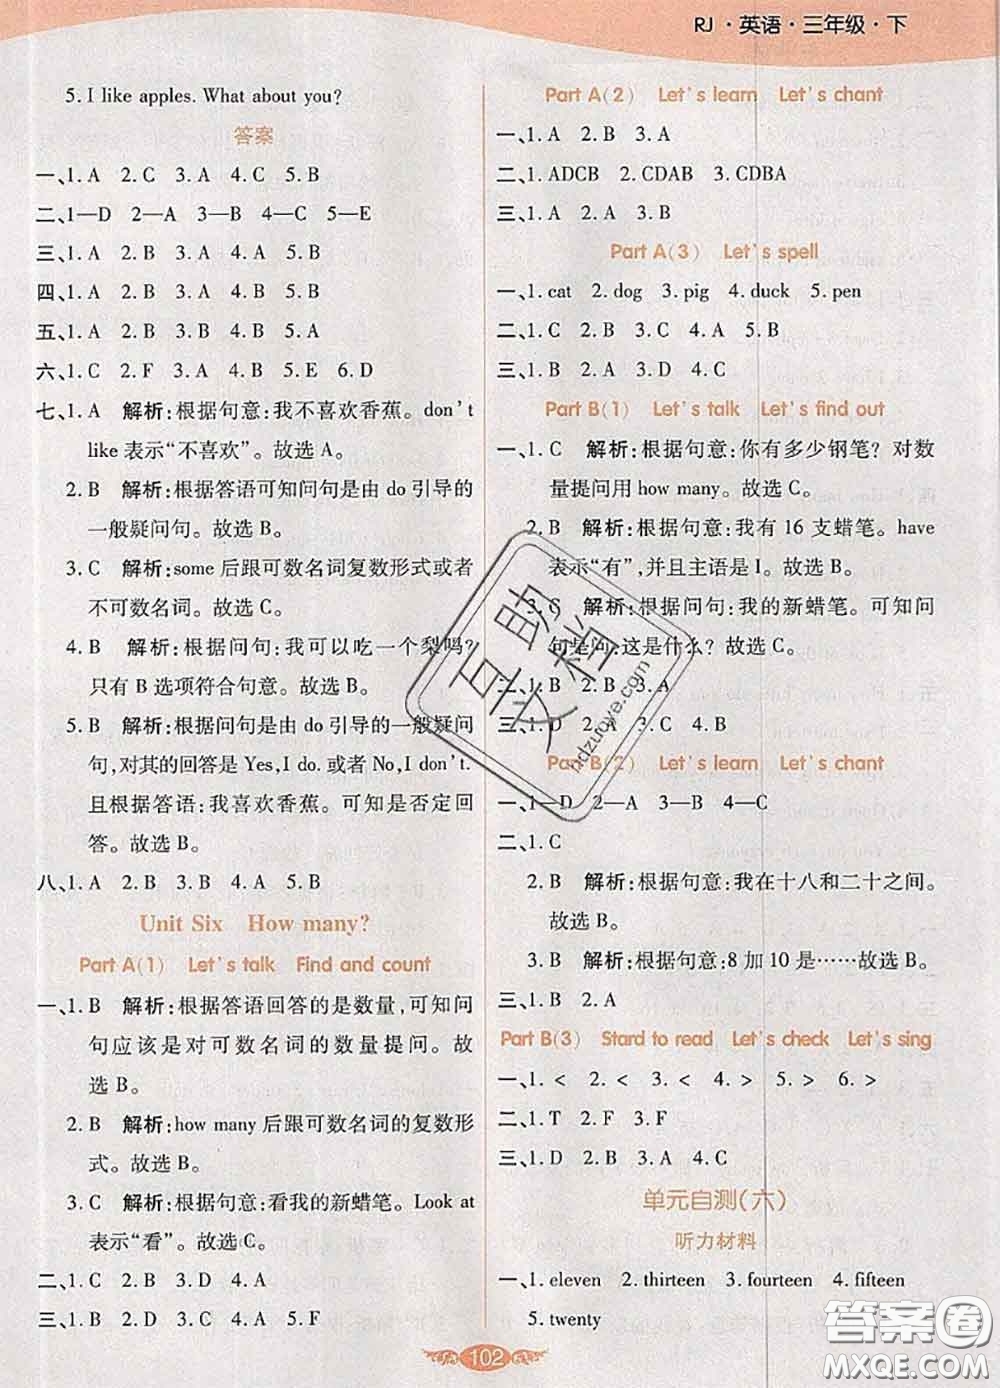 RJ·英语·三年级·下
5. I like apples. What about you?
答案
一、1. A 2. C 3. A 4. C 5. B
二、1—D 2—A 3—B 4—C 5—E
三、1. A 2. B 3. A 4. B 5. B
四、1. A 2. B 3. A 4. B 5. B
五、1. A 2. B 3. B 4. B 5. A
六、1. C 2. F 3. A 4. B 5. E 6. D
七、1. A 解析:根据句意:我不喜欢香蕉。don't
like 表示“不喜欢”。故选 A。
2. B 解析:根据答语可知问句是由 do 引导的
一般疑问句。故选 B。
3. C 解析:some 后跟可数名词复数形式或者
不可数名词。故选 C。
4. B 解析:根据问句:我可以吃一个梨吗?
只有 B 选项符合句意。故选 B。
5. B 解析:根据问句是由 do 引导的一般疑问
句,对其的回答是 Yes,I do. 或者 No,I don't.
且根据答语:我喜欢香蕉。可知是否定回
答。故选 B。
八、1. A 2. B 3. B 4. A 5. B
Unit Six How many?
Part A(1) Let's talk Find and count
一、1. B 解析:根据答语回答的是数量,可知问
句应该是对可数名词的数量提问。故
选 B。
2. B 解析:how many 后跟可数名词的复数形
式。故选 B。
3. C 解析:根据句意:看我的新蜡笔。Look at
表示“看”。故选 C。
二、1. C 2. B 3. D 4. A
三、1. B 2. A 3. D 4. C 5. F
Part A(2) Let's learn Let's chant
一、1. A 2. B 3. A
二、1. ADCB 2. CDAB 3. CDBA
三、1. A 2. A 3. B
Part A(3) Let's spell
一、1. cat 2. dog 3. pig 4. duck 5. pen
二、1. C 2. B 3. C 4. A 5. B
三、1. B 2. D 3. C 4. A
Part B(1) Let's talk Let's find out
一、1. C 解析:根据句意:你有多少钢笔? 对数
量提问用 how many。故选 C。
2. B 解析:根据句意:我有 16 支蜡笔。have
表示“有”,并且主语是 I。故选 B。
3. C 解析:根据问句:我的新蜡笔。可知问
句是问:这是什么? 故选 C。
二、1. B 2. B 3. A
三、1. D 2. A 3. C 4. B
Part B(2) Let's learn Let's chant
一、1—D 2—A 3—B 4—C
二、1. C
2. B 解析:根据句意:我在十八和二十之间。
故选 B。
3. B 解析:根据句意:8 加 10 是……故选 B。
三、1. B 2. A
Part B(3) Stard to read Let's check Let's sing
一、1. < 2. < 3. < 4. < 5. > 6. >
二、1. T 2. F 3. F
三、1. D 2. B 3. A 4. C
单元自测(六)
听力材料
一、1. eleven 2. thirteen 3. fourteen 4. fifteen
5. twenty
102
答案圈
MXQE.COM